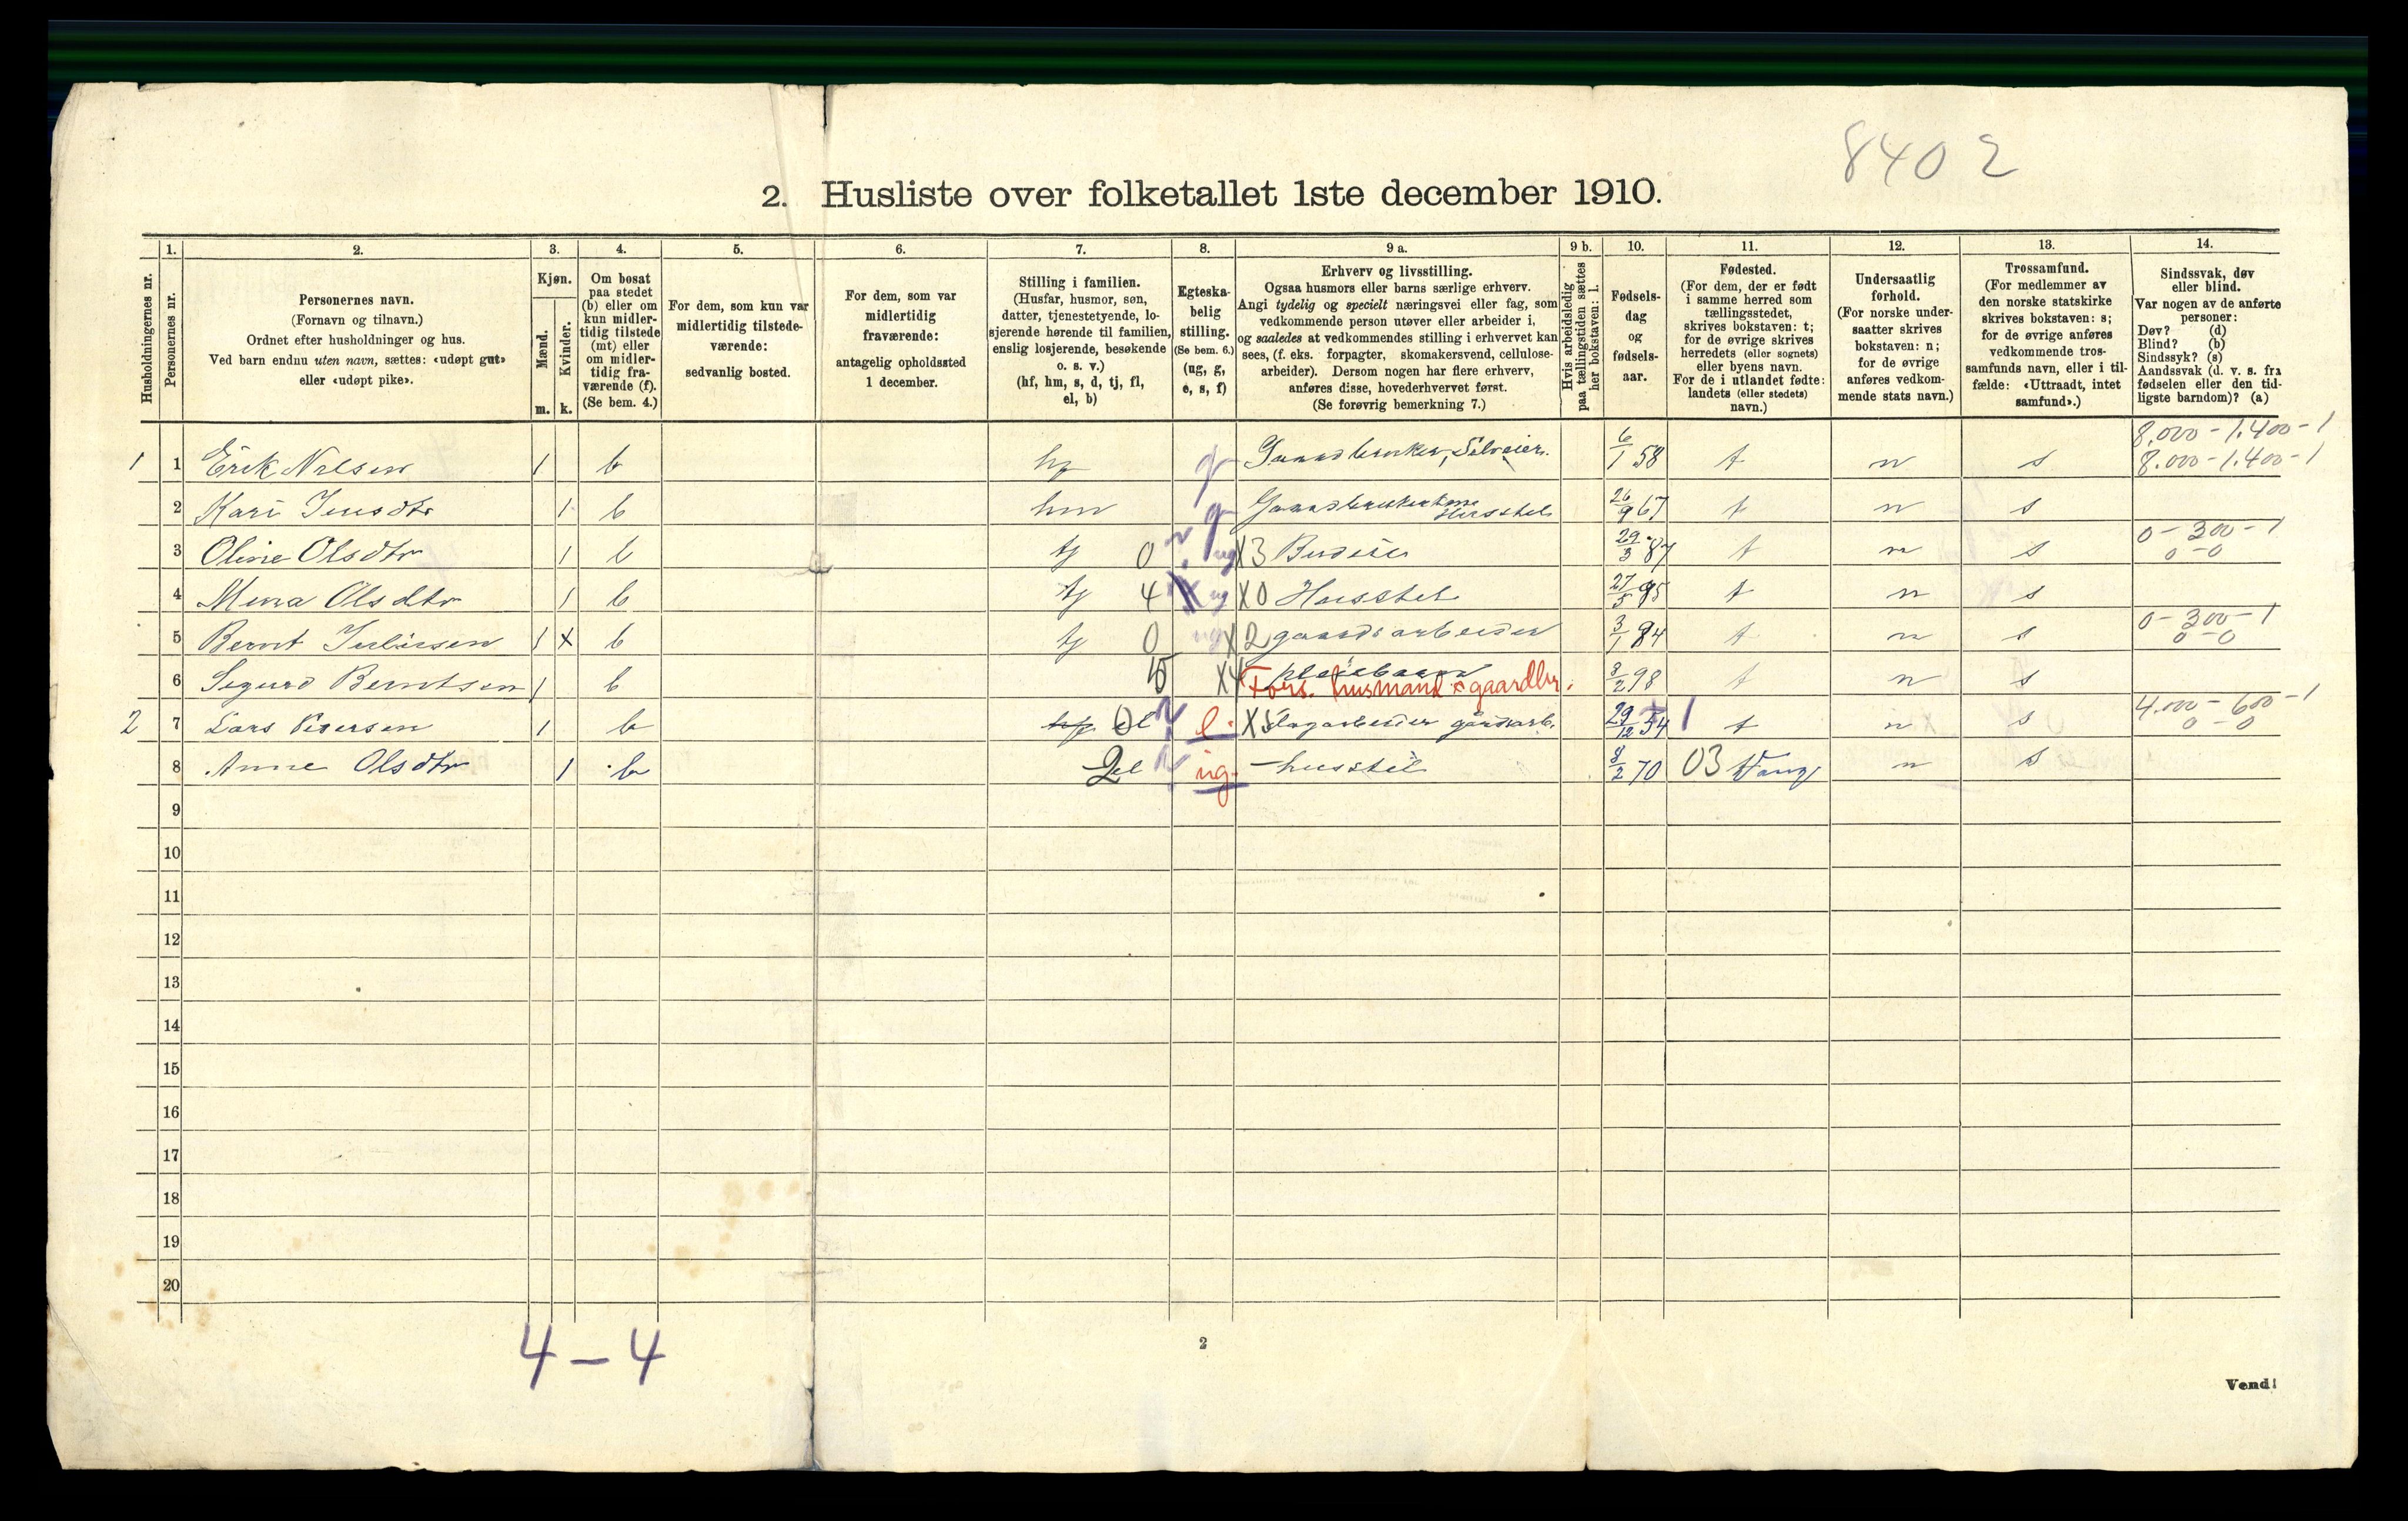 8402
2. Husliste over folketallet 1ste december 1910.
Husholdningernes nr.
1.
Personernes nr.
2.
Personernes navn.
(Fornavn og tilnavn.)
Ordnet efter husholdninger og hus.
Ved barn endnu uten navn, sættes: «udøpt gut»
eller «udøpt pike».
3.
Kjøn.
Mænd.
Kvinder.
m. k.
4.
Om bosat
paa stedet
(b) eller om
kun midler-
tidig tilstede
(mt) eller
om midler-
tidig fra-
værende (f).
(Se bem. 4.)
5.
For dem, som kun var
midlertidig tilstede-
værende:
sedvanlig bosted.
6.
For dem, som var
midlertidig
fraværende:
antagelig opholdssted
1 december.
7.
Stilling i familien.
(Husfar, husmor, søn,
datter, tjenestetyende, lo-
sjerende hørende til familien,
enslig losjerende, besøkende
o. s. v.)
(hf, hm, s, d, tj, fl,
el, b)
8.
Egteska-
belig
stilling.
(Se bem. 6.)
(ug, g,
e, s, f)
9 a.
Erhverv og livsstilling.
Ogsaa husmors eller barns særlige erhverv.
Angi tydelig og specielt næringsvei eller fag, som
vedkommende person utøver eller arbeider i,
og saaledes at vedkommendes stilling i erhvervet kan
sees, (f. eks. forpagter, skomakersvend, cellulose-
arbeider). Dersom nogen har flere erhverv,
anføres disse, hovederhvervet først.
(Se forøvrig bemerkning 7.)
9 b.
Hvis arbeidsledig
paa tællingstiden sættes
her bokstaven: l.
10.
Fødsels-
dag
og
fødsels-
aar.
11.
Fødested.
(For dem, der er født
i samme herred som
tællingsstedet,
skrives bokstaven: t;
for de øvrige skrives
herredets (eller sognets)
eller byens navn.
For de i utlandet fødte:
landets (eller stedets)
navn.)
12.
Undersaatlig
forhold.
(For norske under-
saatter skrives
bokstaven: n;
for de øvrige
anføres vedkom-
mende stats navn.)
13.
Trossamfund.
(For medlemmer av
den norske statskirke
skrives bokstaven: s;
for de øvrige anføres
vedkommende tros-
samfunds navn, eller i til-
fælde: «Uttraadt, intet
samfund».)
14.
Sindssvak, døv
eller blind.
Var nogen av de anførte
personer:
Døv? (d)
Blind? (b)
Sindssyk? (s)
Aandssvak (d. v. s. fra
fødselen eller den tid-
ligste barndom)? (a)
8.000 - 1.400 - 1
1 1 Erik Nilsen 1 b hf g Gaardbruker, Selveier. 6/1 58 t n s 8.000 - 1.400 - 1
2 Kari Jensdtr 1 b hm g Husstel 26/9 67 t n s
0 - 300 - 1
3 Oline Olsdtr 1 b tj 0 ug X3 Budeie 29/3 87 t n s 0 - 0
4 Mina Olsdtr 1 b tj 4 ug X0 Husstel 27/5 95 t n s
0 - 300 - 1
5 Bernt Juliussen 1 X b tj 0 ug X2 gaardsarbeider 3/1 84 t n s 0 - 0
6 Sigurd Berntsen 1 b X4 pleiebarn 3/2 98 t n s
Fors. husmand x gaardbr.
4.000 - 600 - 1
2 7 Lars Pedersen 1 b el e. X5 dagarbeider gårdsarb. 29/12 54 1 t n s 0 - 0
8 Anne Olsdtr 1 b 2 el ug. - husstel 8/2 70 03 Vang n s
9
10
11
12
13
14
15
16
17
18
19
20
4 - 4
2
Vend!